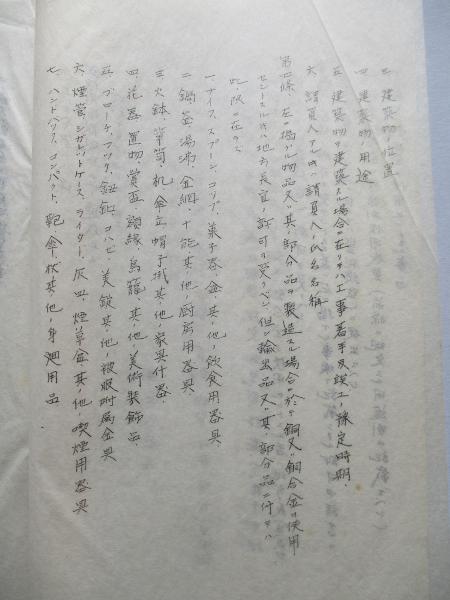 三、建築物ノ位置
四、建築物ノ用途
五、建築物ヲ建築スル場合ニ在リテハ工事着手及竣工ノ豫定時期、
六、請負人アル時ハ請負人ノ氏名名稱
第四條 左ニ掲グル物品又ハ其ノ部分品ヲ製造スル場合ニ於テ銅又ハ銅合金ヲ使用
セントスル時ハ地方長官ノ許可ヲ受クベシ但シ輸出品又ハ其ノ部分品ニ付テハ
此ノ限ニ在ラズ
一、ナイフ、スプーン、コップ、菓子器、盆、其ノ他ノ飲食用器具
二、鍋、釜、湯沸、金網、十能其ノ他ノ厨房用器具
三、火鉢、箪笥、机、傘立、帽子掛其ノ他ノ家具什器、
四、花器、置物、賞盃、額縁、鳥籠、其ノ他ノ美術装飾品、
五、ブローチ、フック、釦鈕、コハゼ、美錠其ノ他ノ被服附属金具
六、煙管、シガレットケース、ライター、灰皿、煙草盆、其ノ他ノ喫煙用器具
七、ハンドバッグ、コンパクト、鞄、傘、杖其ノ他ノ身廻用品、